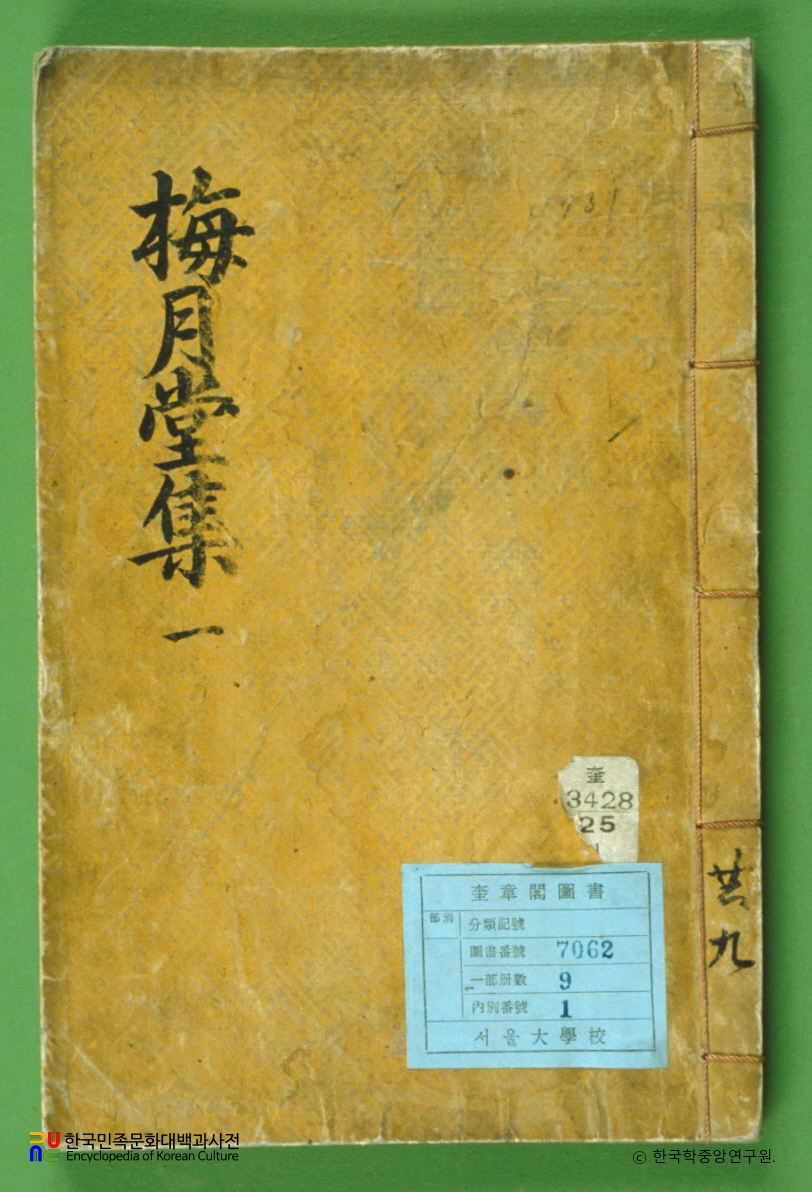 梅月堂集 一
奎
3428
25
奎章閣圖書
部別
分類記號
圖書番號 7062
一部册數 9
內別番號 1
서울大學校
共九
한국민족문화대백과사전
Encyclopedia of Korean Culture
ⓒ 한국학중앙연구원.